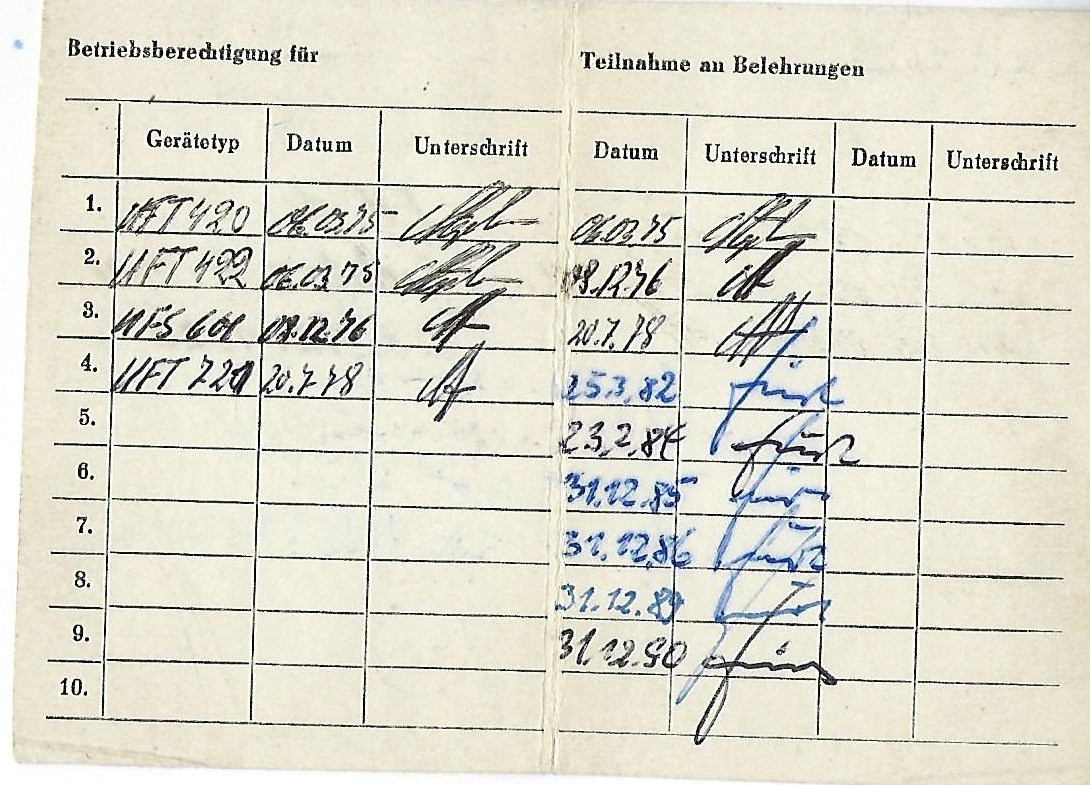 Betriebsberechtigung für
Teilnahme an Belehrungen
Gerätetyp Datum Unterschrift Datum Unterschrift Datum Unterschrift
1. UFT 420 06.03.75 06.03.75
2. UFT 422 06.03.75 08.12.76
3. UFS 601 08.12.76 20.7.78
4. UFT 721 20.7.78 25.3.82
5. 23.2.84
6. 31.12.85
7. 31.12.86
8. 31.12.89
9. 31.12.90
10.